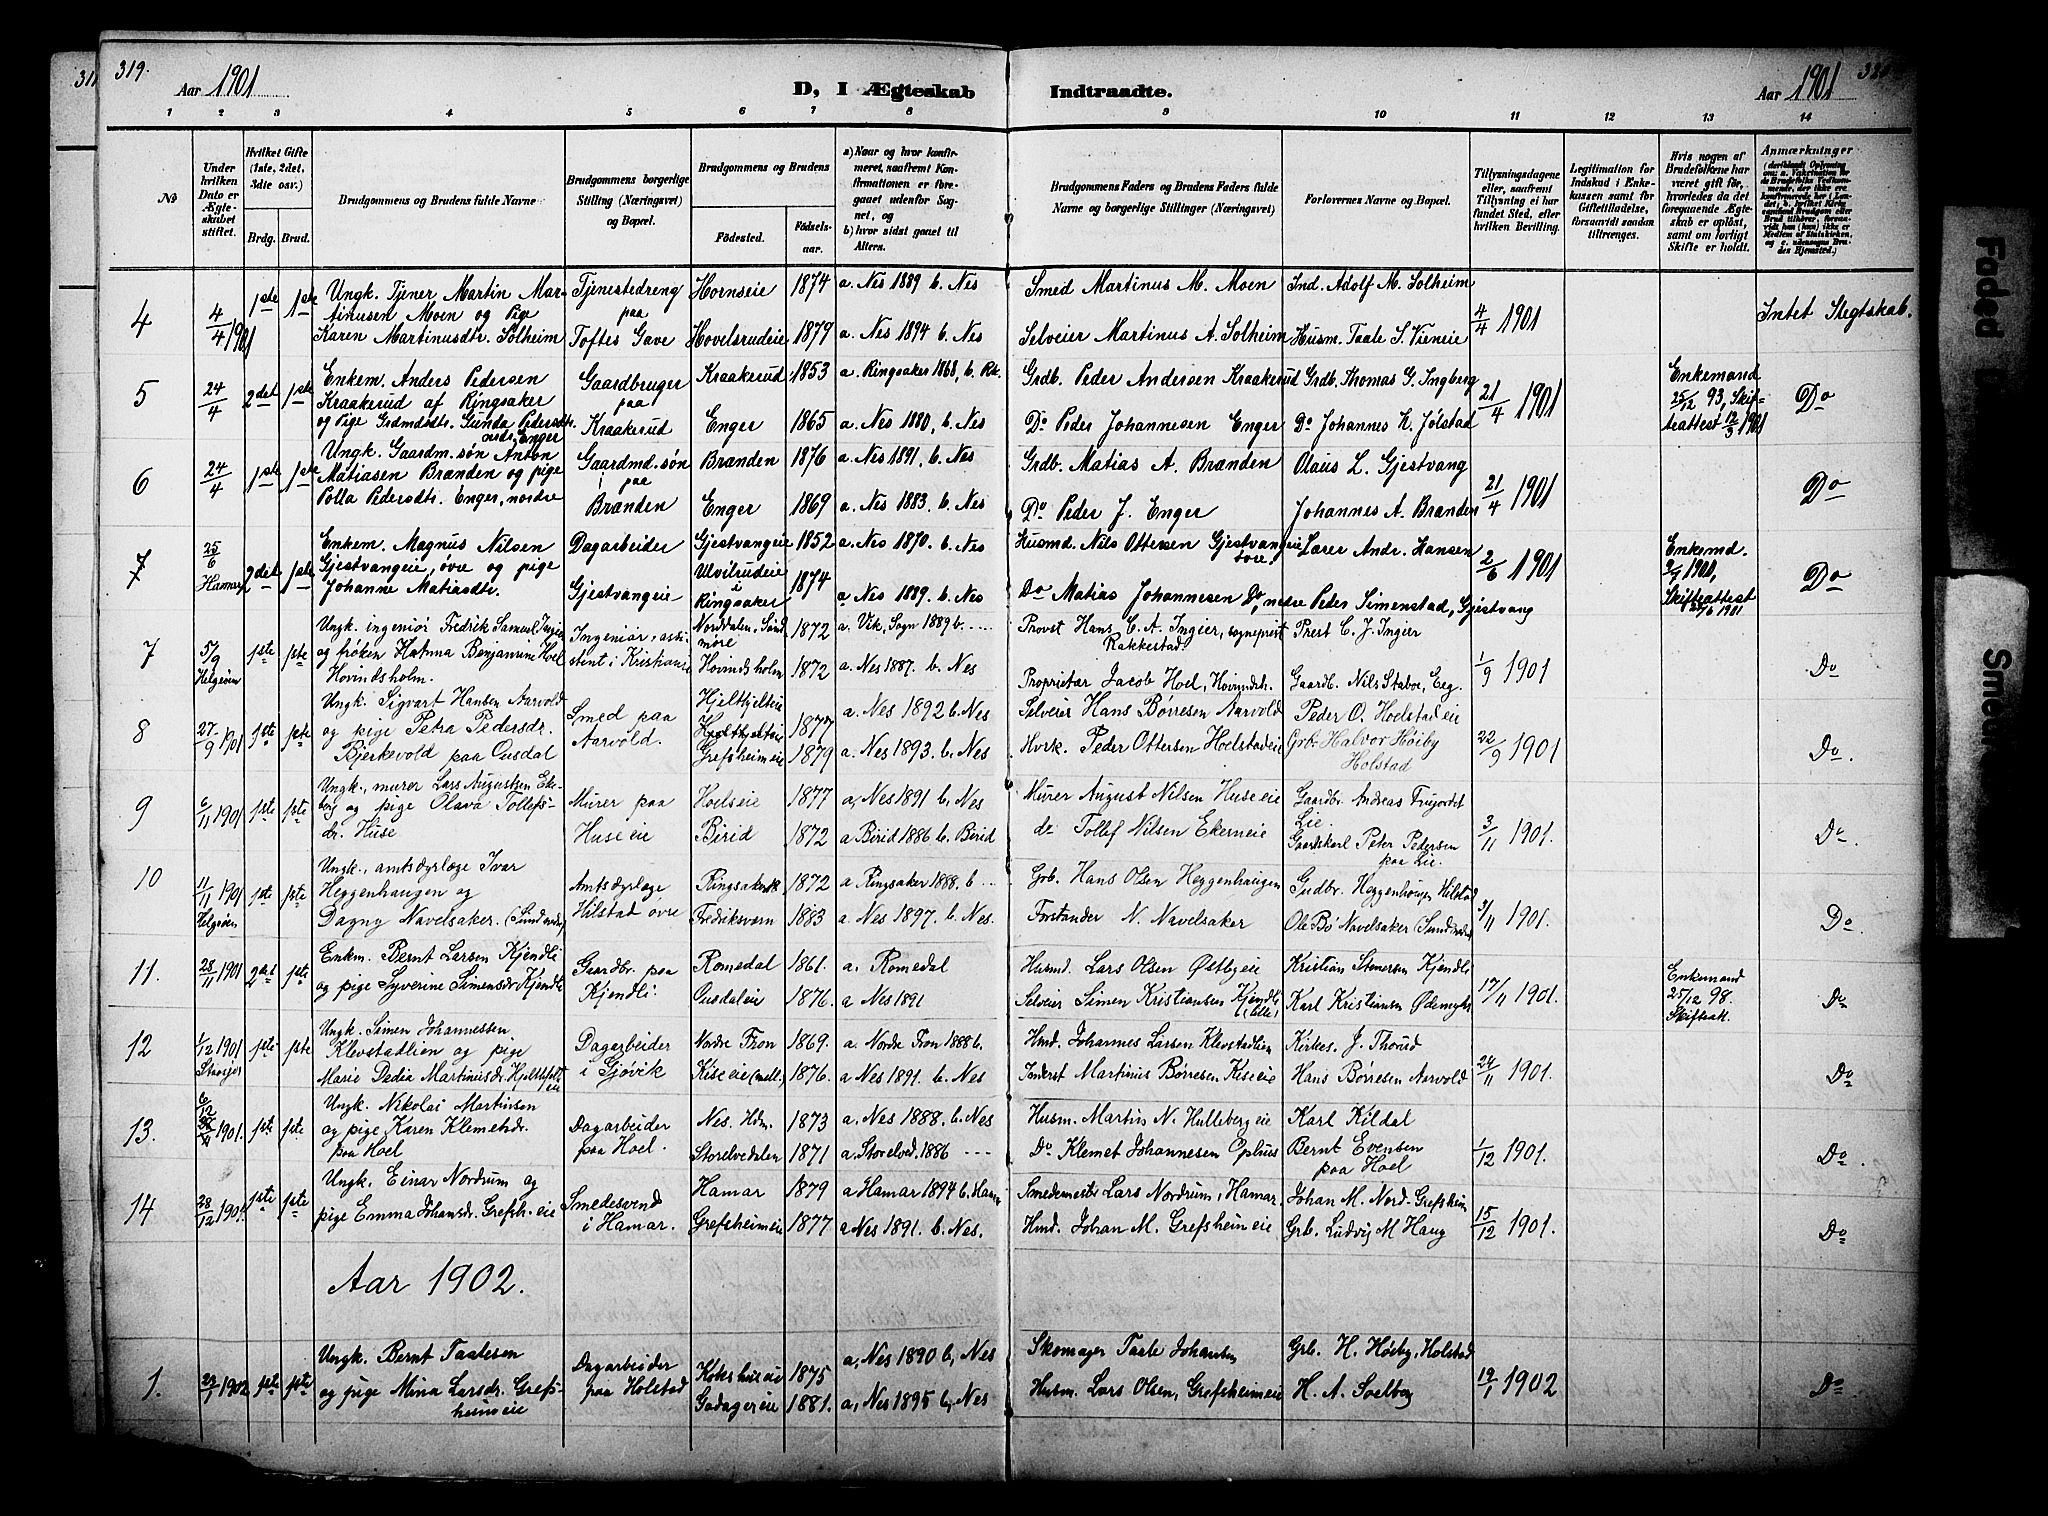 319.
Aar 1901
D, I Ægteskab
Indtraadte.
Aar 1901
1 2 3 4 5 6 7 8 9 10 11 12 13 14
No
Under hvilken Dato er Ægteskabet stiftet.
Hvilket Gifte (1ste, 2det, 3dte osv.)
Brdg. Brud.
Brudgommens og Brudens fulde Navne
Brudgommens borgerlige Stilling (Næringsvei) og Bopæl.
Brudgommens og Brudens
Fødested.
Fødselsaar.
a) Naar og hvor konfirmeret, saafremt Konfirmationen er foregaaet udenfor Sognet, og
b) hvor sidst gaaet til Alters.
Brudgommens Faders og Brudens Faders fulde Navne og borgerlige Stillinger (Næringsvei)
Forlovernes Navne og Bopæl.
Tillysningsdagene eller, saafremt Tillysning ei har fundet Sted, efter hvilken Bevilling.
Legitimation for Indskud i Enkekassen samt for Giftetilladelse, forsaavidt saadan tiltrænges.
Hvis nogen af Brudefolkene har været gift før, hvorledes da det foregaaende Ægteskab er opløst, samt om lovligt Skifte er holdt.
Anmærkninger
4 4/4 1901 1ste 1ste
Ungk. Tjener Martin Martinusen Moen og Pige
Karen Martinusdtr. Solheim
Tjenestedreng paa Toftes Gave
Hornseie 1874 a. Nes 1889 b. Nes
Hovelsrudeie 1879 a. Nes 1894 b. Nes
Smed Martinus M. Moen
Selveier Martinus A. Solheim
Ind. Adolf M. Solheim
Husm. Taale S. Vieneie
4/4 1901
Intet Slegtskab.
5 24/4 2det 1ste
Enkem. Anders Pedersen
Kraakerud af Ringsaker
og Pige Grdmdstr. Gunda Pedersdtr.
Enger
Gaardbruger paa Kraakerud
Kraakerud 1853 a. Ringsaker 1868, b. Rk.
Enger 1865 a. Nes 1880, b. Nes
Grdb. Peder Andersen Kraakerud
Do Peder Johannesen Enger
Grdb. Thomas G. Ingberg
Do Johannes K. Jølstad
21/4 1901
Enkemand 25/12 93, Skifteattest 12/3 1901
Do
6 24/4 1ste 1ste
Ungk. Gaardm. søn Anton
Matiasen Brænden og pige
Polla Pedersdtr. Enger, nordre
Gaardmd. søn paa Brænden
Brænden 1876 a. Nes 1891, b. Nes
Enger 1869 a. Nes 1883. b. Nes
Grdb. Matias A. Brænden
Do. Peder J. Enger
Olaus L. Gjestvang
Johannes A. Brænden
21/4 1901
Do
7 25/6 Hamar 2det 1ste
Enkem. Magnus Nilsen
Gjestvangeie, øvre og pige
Johanne Matiasdtr.
Dagarbeider Gjestvangeie
Gjestvangeie 1852 a. Nes 1870. b. Nes
Ulvilrudeie i Ringsaker 1874 a. Nes 1889. b. Nes
Husmd. Nils Ottersen Gjestvangeie
Do Matias Johannesen Do, nedre
Lærer Andr. Hansen
Peder Simenstad, Gjestvang
2/6 1901
Enkemd. 1901, Skifteattest 1901
Do
7 5/9 Helgøen 1ste 1ste
Ungk. ingeniør Fredrik Samuel Ingier
og frøken Hanna Benjamine Hoel
Hovindsholm.
Ingeniør, assistent i Kristiania
Norddalen, Søndmøre 1872 a. Vik, Sogn 1889 b. ----
Hovindsholm 1872 a. Nes 1887. b. Nes
Provst Hans C. A. Ingier, sogneprest
Rakkestad.
Proprietær Jacob Hoel, Hovindsh.
Prest C. J. Ingier
Gaardb. Nils Staboe, Eeg.
1/9 1901
Do
8 27/9 1901 1ste 1ste
Ungk. Sigvart Hansen Aarvold
og pige Petra Pedersdr.
Bjerkevold paa Ousdal
Smed paa Aarvold.
Hjelthjelteie 1877 a. Nes 1892 b. Nes
Grefsheimeie 1879 a. Nes 1893. b. Nes
Selveier Hans Børresen Aarvold
Hvrk. Peder Ottersen Hoelstadeie
Peder O. Hoelstadeie
Grb. Halvor Høiby
Holstad
22/9 1901
Do
9 6/11 1901 1ste 1ste
Ungk., murer Lars Augustsen Ekeberg
og pige Olava Tollefsdr.
Huse
Murer paa Huseeie
Hoelseie 1877 a. Nes 1891 b. Nes
Birid 1872 a Birid 1886 b. Birid
Murer August Nilsen Huseeie
do Tollef Nilsen Ekerneie
Gaardbr. Andreas Frujordet
Lie
Gaardskarl Peter Pedersen
paa Lie.
3/11 1901.
Do
10 11/11 1901 Helgøen 1ste 1ste
Ungk., amtsdyrlæge Ivar
Heggenhaugen og
Dagny Navelsaker.
Amtsdyrlæge Hilstad øvre
Ringsaker 1872 a Ringsaker 1888. b ---
Fredriksværn 1883 a. Nes 1897. b. Nes.
Grb. Hans Olsen Heggenhaugen
Forstander N. Navelsaker
Gudbr. Heggenhaugen Hilstad
Ole Bø Navelsaker
3/11 1901.
Do
11. 28/11 1901 2det 1ste
Enkm. Bernt Larsen Kjendli
og pige Syverine Simensdr. Kjendli
Gaardbr. paa Kjendli.
Romedal 1861. a. Romedal
Ousdaleie 1876. a Nes 1891
Husmd. Lars Olsen Østbyeie
Selveier Simen Kristiansen Kjendli
Kristian Stenersen Kjendli
Karl Kristiansen
17/11 1901.
Enkemand 25/12 98. Skifteatt.
Do
12 1/12 1901 1ste 1ste
Ungk. Simen Johannessen
Klevstadlien og pige
Marie Pedia Martinusdr.
Dagarbeider i Gjøvik
Nordre Fron 1869. a. Nordre Fron 1888 b.
Kiseeie 1876. a Nes 1891. b. Nes
Hmd. Johannes Larsen Klevstadlien
Inderst Martinus Børresen Kiseeie
Kirkes. J. Thorud
Hans Børresen Aarvold
24/11 1901.
Do
13. 6/12 1901. 1ste 1ste
Ungk. Nikolai Martinsen
og pige Karen Klemetsdr.
paa Hoel
Dagarbeider paa Hoel.
Nes. Hdm. 1873 a. Nes 1888. b. Nes
Storelvedalen 1871 a. Storelved. 1886 ---
Husm. Martin N. Hulleberg eie
Do Klemet Johannesen Ophus
Karl Kildal
Bernt Evensen
paa Hoel
1/12 1901.
Do
14 28/12 1901. 1ste 1ste
Ungk. Einar Nordrum og
pige Emma Johansdr. Grefsh. eie
Smedesvend i Hamar.
Hamar 1879 a Hamar 1894 b. Hamar
Grefsheimeie 1877. a Nes 1891. b. Nes.
Smedemester Lars Nordrum, Hamar.
Hmd. Johan M. Grefsheimeie
Johan M. Nord-Grefsheim
Grb. Ludvig M Haug
15/12 1901.
Do
Aar 1902.
1. 1902 1ste 1ste
Ungk. Bernt Taalesen
og pige Mina Larsdr. Grefsheimeie
Dagarbeider paa Holstad
1875 a. Nes 1890 b. Nes
Godagereie 1881. a. Nes 1895 b. Nes
Skomager Taale Johansen
Husm. Lars Olsen, Grefsheimeie
Grb. H. Høiby, Holstad
H. A. Soelberg
19/1 1902
Do
Faded